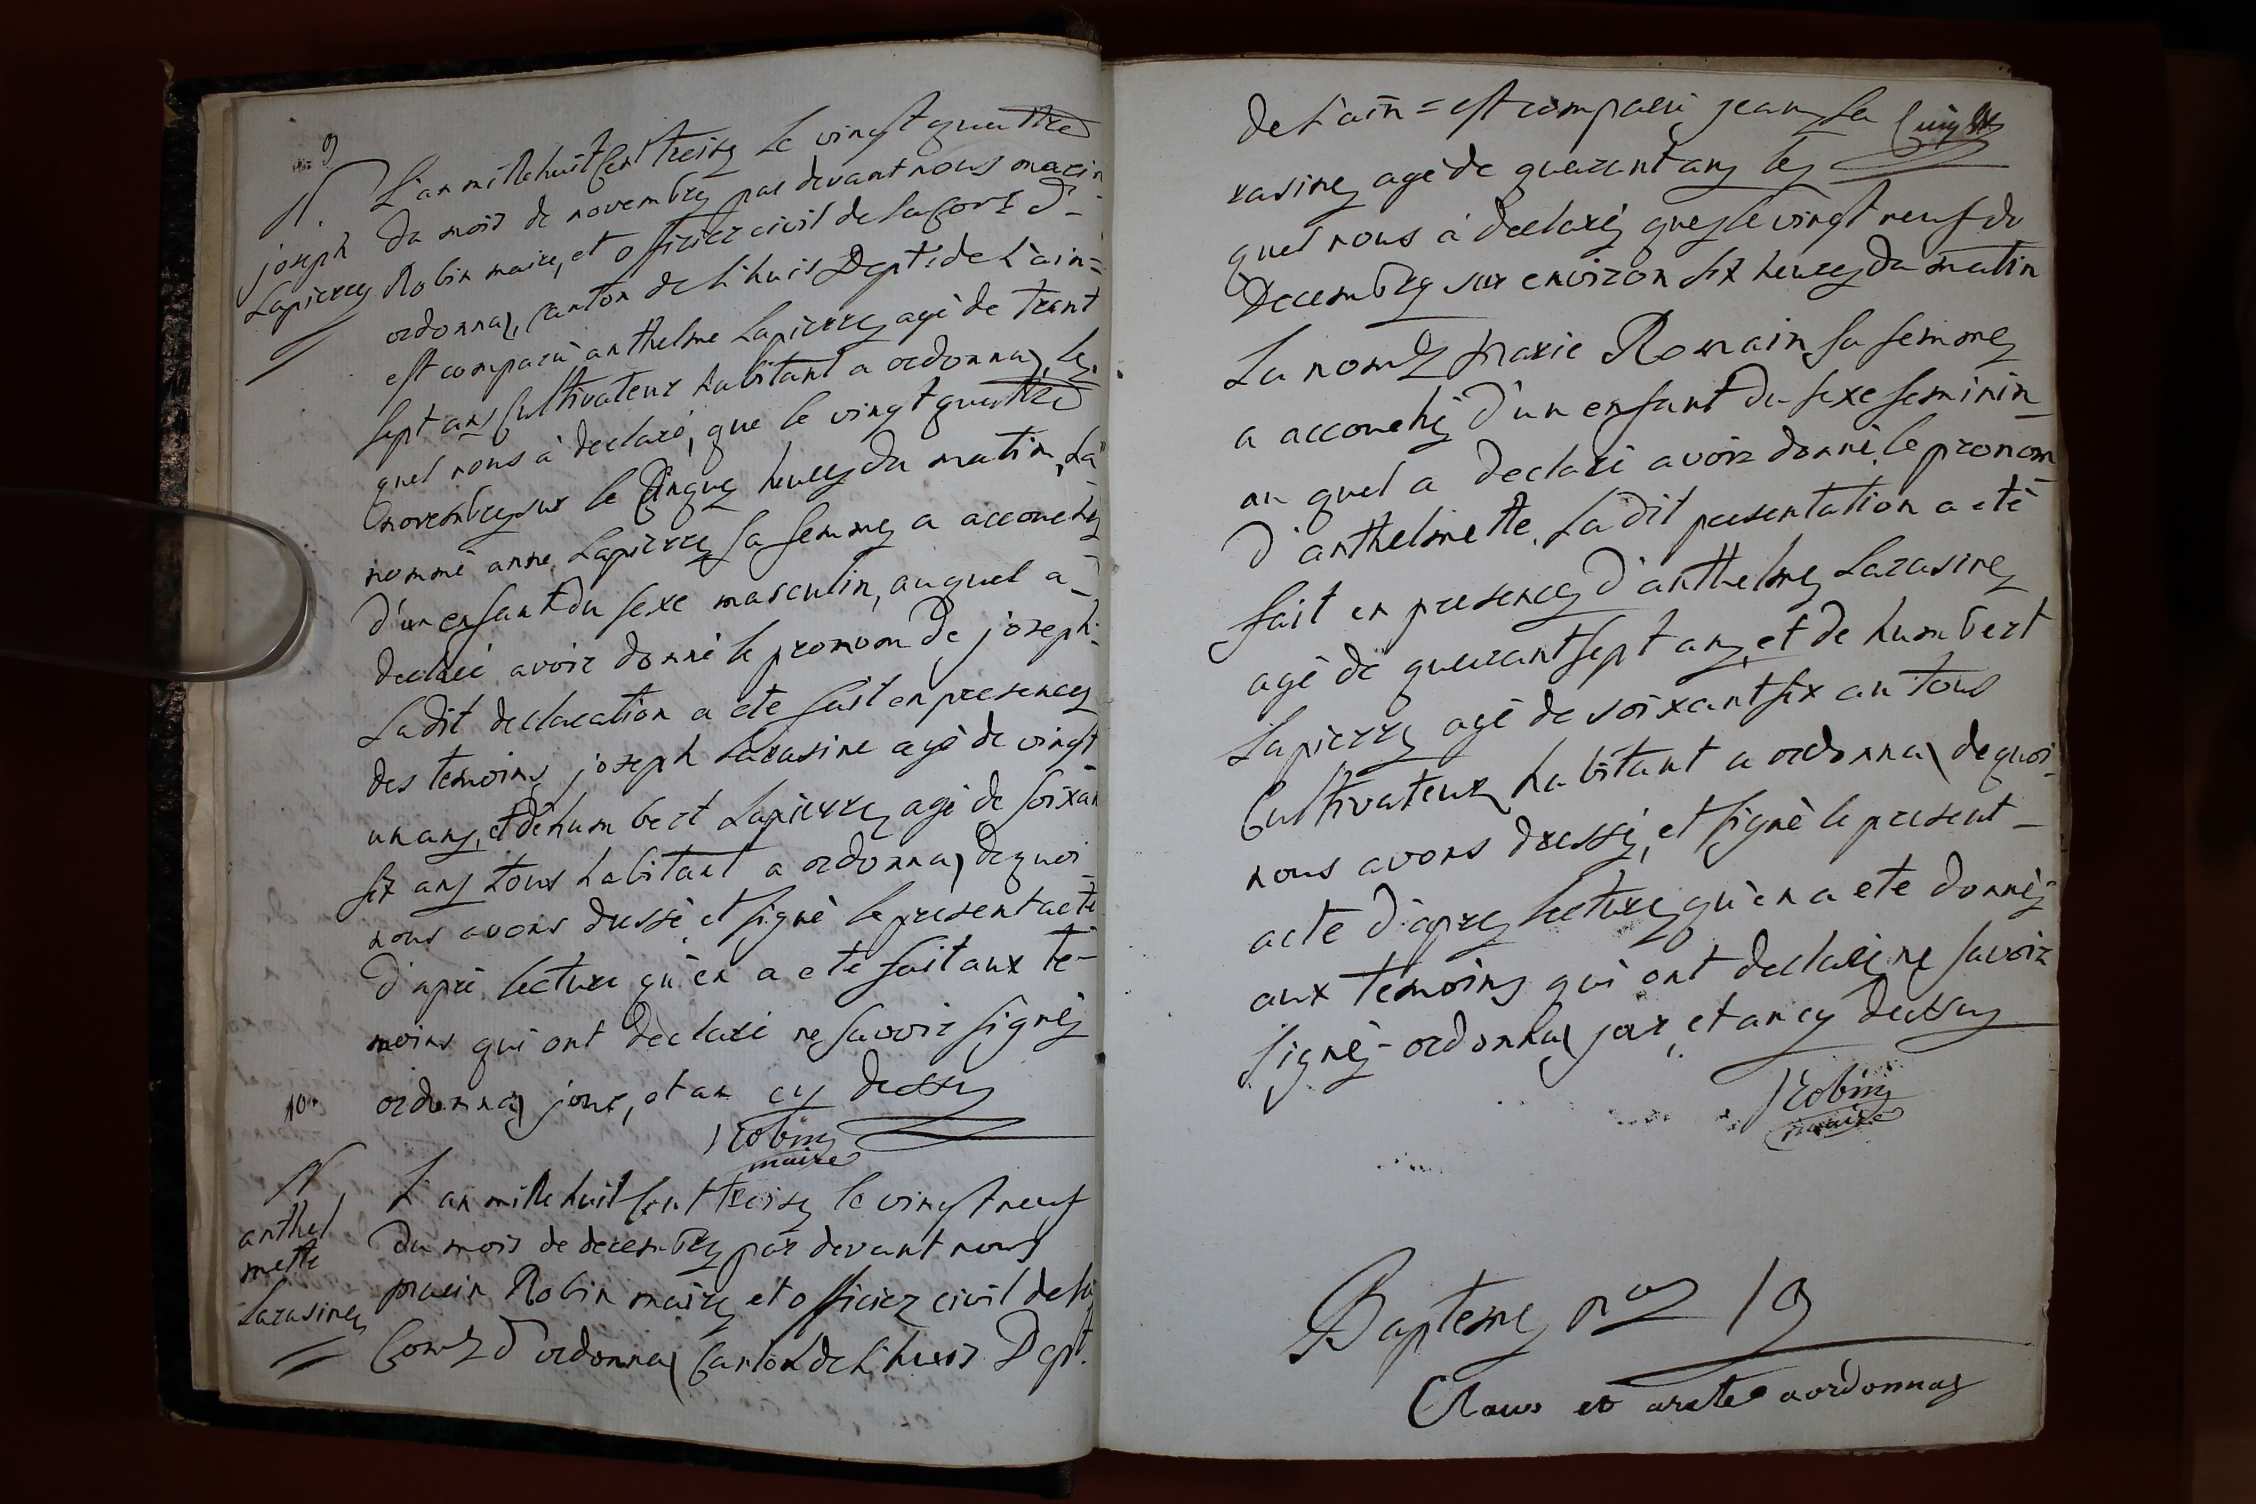 9
N.
joseph
Lapierre
L'an mille huit cent treise le vingt quattre
du mois de novembre par devant nous marin
Robin maire, et officier civil de la com.e d'-
ordonnas, canton de L'huis Dept. de L'ain=
est comparu anthelme Lapierre agé de trent
sept ans Cultivateur habitant a ordonnas, le.
quel nous à declaré, que le vingt quattre
novembre sur le Cinque heures du matin, La
nommé anne Lapierre sa femme a accouché
d'un enfant du sexe masculin, au quel a-
declaré avoir donné le pronom de joseph-
La dit declaration a ete fait en presence
des temoins joseph Larasine agé de vingt
un ans, et de humbert Lapierre agé de soixan
six ans tous habitant a ordonnas de quoi
nous avons dressé et signé le present acte
d'apré lecture qu'en a ete fait aux te-
moins qui ont déclaré ne savoir signé
ordonnas jour, et an cy dessus
Robin
maire
10
N
anthel
mette
Larasine
L'an mille huit cent treise le vingt neuf
du mois de decembre par devant nous
marin Robin maire et officier civil de la
Com.e d'ordonnas Canton de L'huis Dept.
de L'ain = est comparu jean La
rasine agé de quarant ans le
quel nous à declaré que le vingt neuf du
Decembre sur environ six heures du matin
La nomé Marie Romain sa femme
a accouché d'un enfant du sexe feminin
au quel a declaré avoir donné le pronom
d'anthelmette. La dit presentation a eté
fait en presence d'anthelme Larasine
agé de quarant sept ans, et de humbert
Lapierre agé de soixant six an tous
Cultivateur habitant a ordonnas de quoi-
nous avons dressé, et signé le present-
acte d'apres lecture qu'en a ete donné
aux temoins qui ont declaré ne savoir
signé- ordonnas jour, et an cy dessus
Robin
maire
Bapteme
Claus et areté a ordonnas